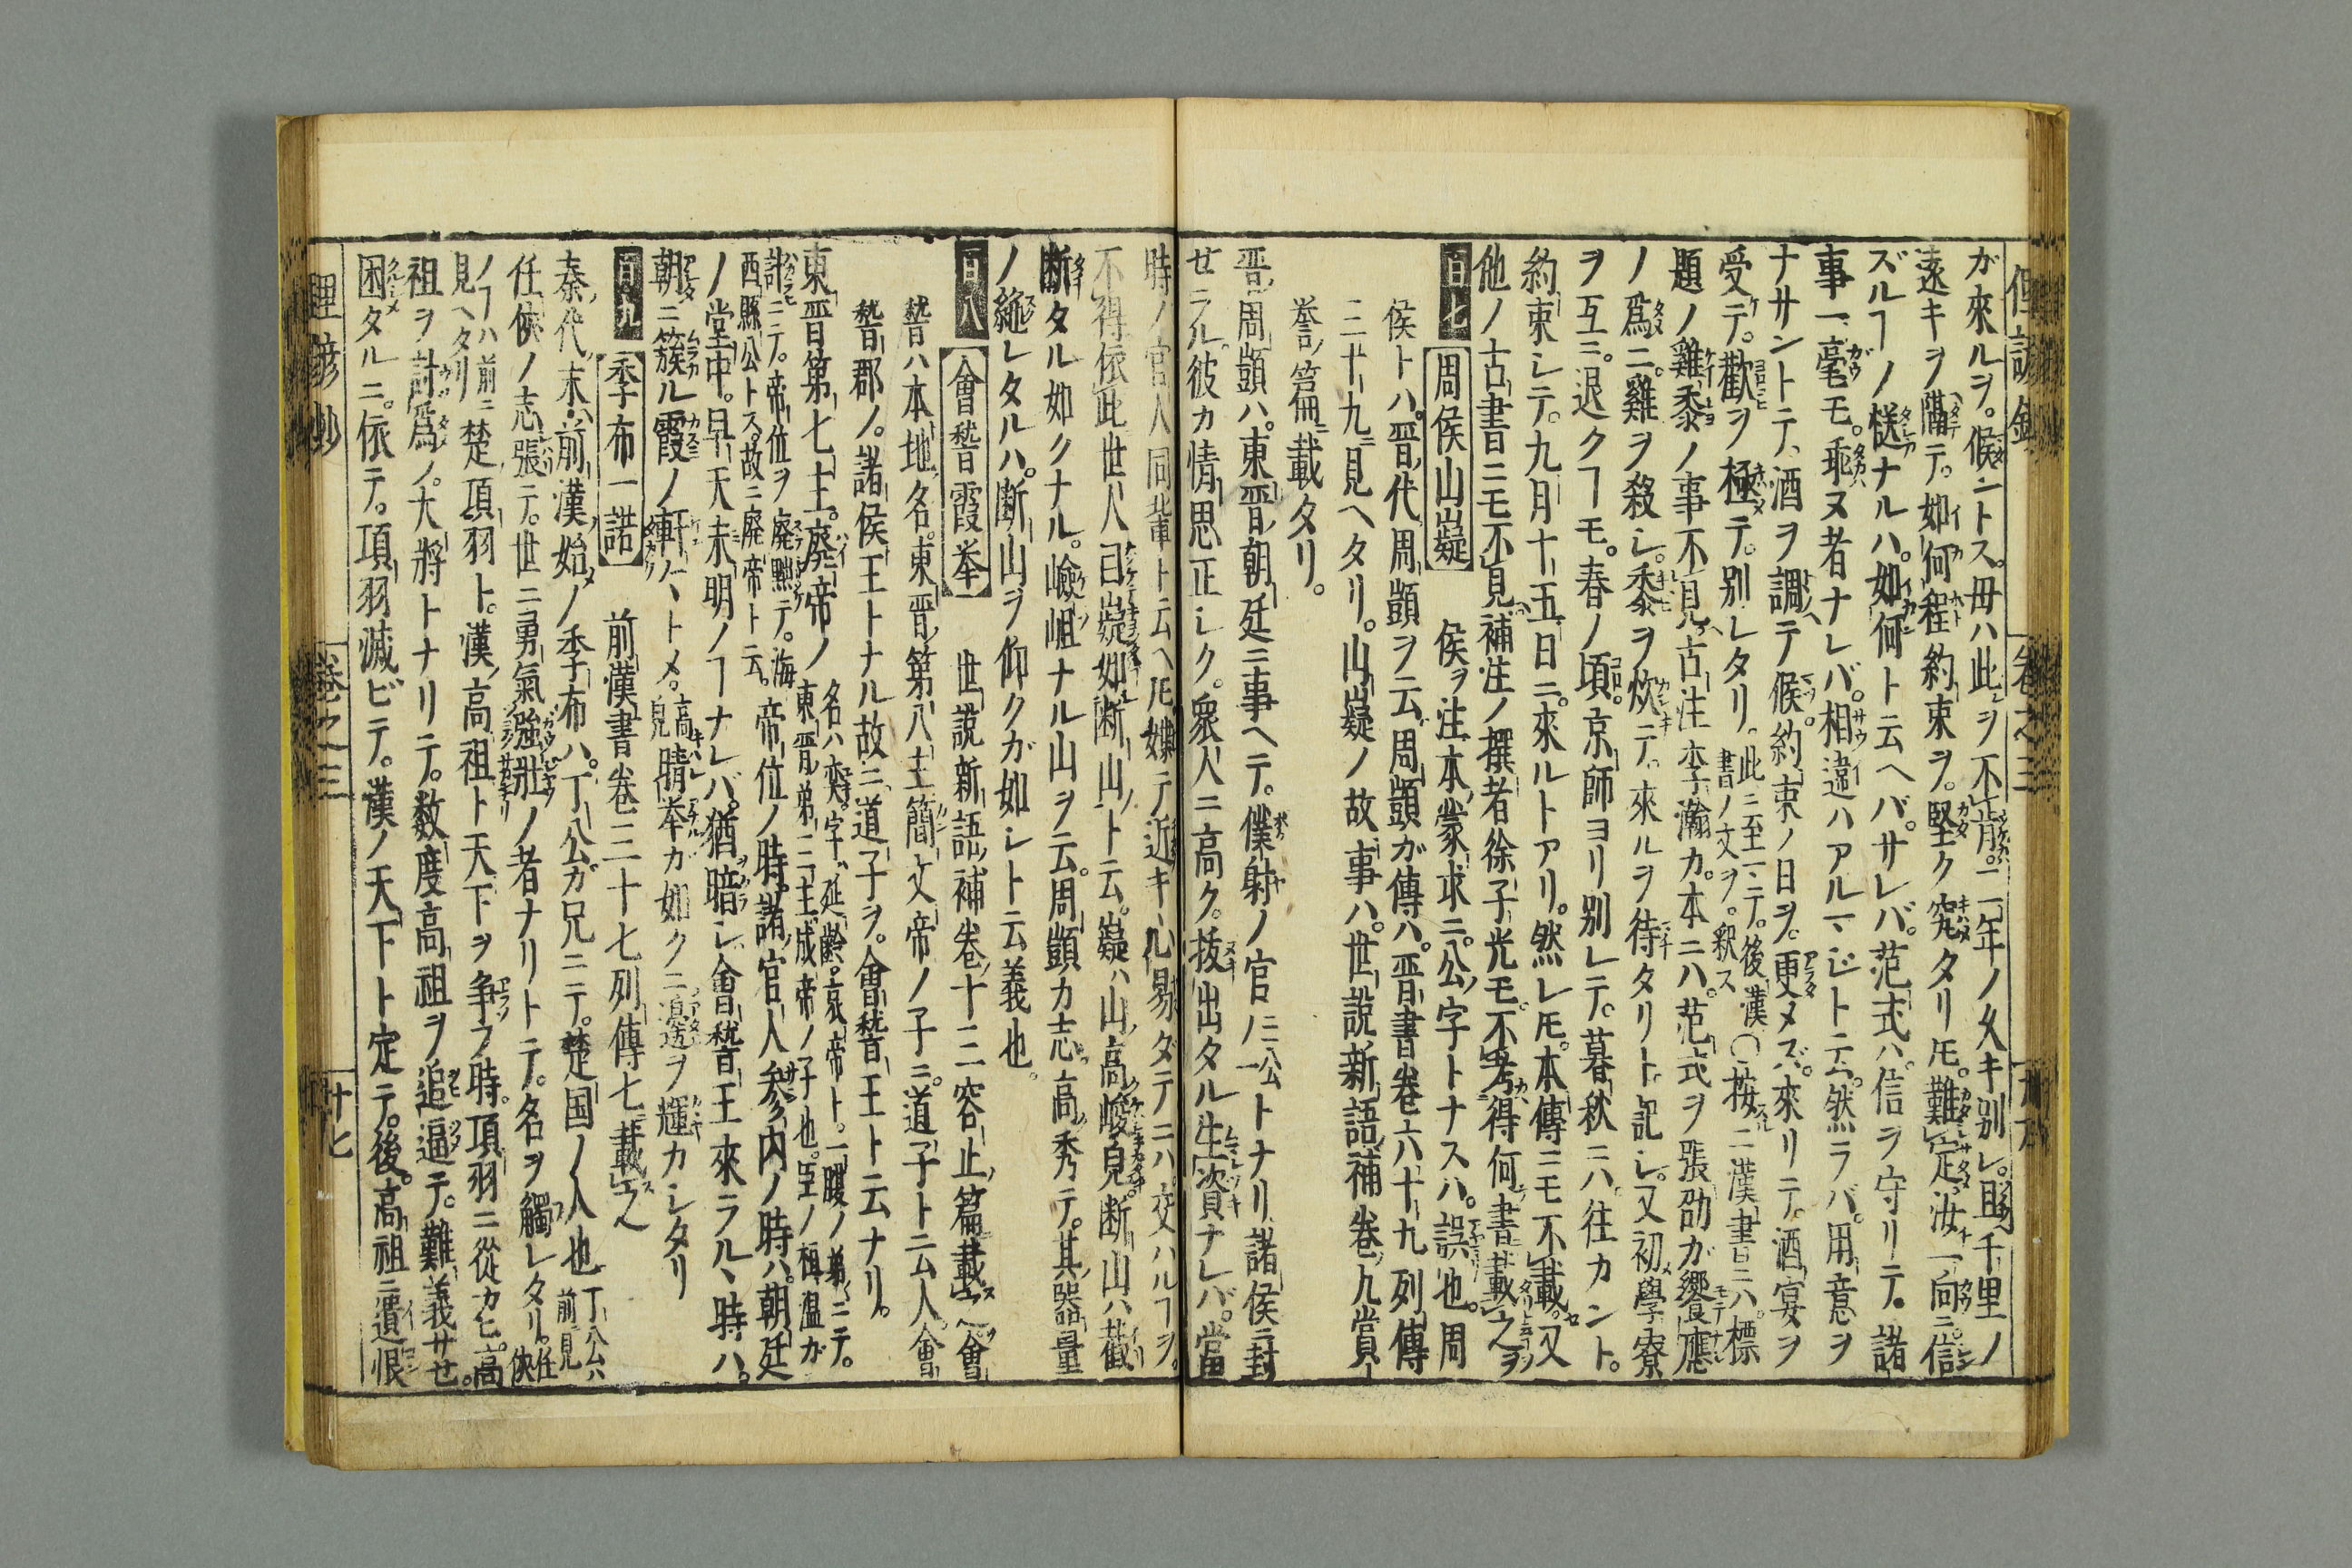 ガ來ルヲ。候ントス。母ハ此ヲ不肯。二年ノ久キ別レ。且千里ノ
遠キヲ隔テ。如何程約束ヲ。堅ク究タリ𪜈。難定。汝一向ニ信
ズルヿノ樣ナルハ。如何ト云ヘバ。サレバ。范式ハ。信ヲ守リテ。諸
事一毫モ。乖ヌ者ナレバ。相違ハアルマジト云。然ラバ。用意ヲ
ナサントテ、酒ヲ調テ候。約束ノ日ヲ。更メズ。來リテ。酒宴ヲ
受テ。歡ヲ極テ。別レタリ。此ニ至一ニテ。後漢書ノ文ヲ。釈ス○按ニ漢書ニハ。標
題ノ雞黍ノ事不見。古注李瀚カ。本ニハ。范式ヲ張劭ガ饗應
ノ爲ニ。雞ヲ殺シ。黍ヲ炊テ。來ルヲ待タリト。記シ。又初學寮
ヲ互ニ。退クヿモ。春ノ頃。京師ヨリ別レテ。暮秋ニハ。往カント。
約束シテ。九月十五日ニ。來ルトアリ。然レ𪜈。本傳ニモ不載。又
他ノ古書ニモ不見。補注ノ撰者徐子光モ。不考得何書載之ヲ
百七 周侯山嶷 侯ヲ注本蒙求ニ。公字トナスハ。誤也。周
侯トハ。晋代周顗ヲ云。周顗ガ傳ハ。晋書巻六十九列傳
三十九ニ見ヘタリ。山嶷ノ故事ハ。世説新語補巻九賞
誉篇ニ載タリ。
晋周顗ハ。東晋朝廷ニ事ヘテ。僕射ノ官ニトナリ。諸侯ニ封
セラル。彼カ情思正シク。衆人ニ高ク。抜出タル生資ナレバ。當
時ノ官人同輩ト云ヘ𪜈。媟テ近キ心易ダテニハ。交ハルヿヲ。
不得。依此世人曰嶷如断山ト云。嶷ハ山高峻皃。断山ハ截
断タル如クナル。嶮岨ナル山ヲ云。周顗カ志高秀テ。其器量
ノ縋レタルハ。断山ヲ仰クガ如シト云義也。
百八 會稽霞挙 世説新語補巻十二容止篇載之。會
稽ハ本地名。東晋第八主簡文帝ノ子ニ。道子ト云人會
稽郡ノ。諸侯王トナル故ニ。道子ヲ。會稽王ト云ナリ。
東晋第七主。廃帝ノ名ハ奕。字ハ延齡。哀帝ト。一腹ノ弟ニテ。東晋弟三主成帝ノ子也。臣ノ桓温ガ
計ニテ。帝位ヲ廃黜テ。海西縣公トス。故ニ廃帝ト云。帝位ノ時。諸官人参内ノ時ハ。朝廷
ノ堂中。早天未明ノヿナレバ。猶暗シ。會稽王來ラル、時ハ。
朝ニ簇ル霞ノ軒々トメ。高皃晴挙ガ如クニ。邉ヲ輝カシタリ
百九 季布一諾 前漢書巻三十七列傳七載之
秦代末。前漢始ノ季布ハ。丁公ガ兄ニテ。楚国ノ人也丁公ハ前見
任俠ノ志張テ。世ニ勇氣強壯ノ者ナリトテ。名ヲ觸レタリ。任俠
ノヿハ前ニ見ヘタリ楚項羽ト。漢高祖ト天下ヲ争フ時。項羽ニ從カヒ。高
祖ヲ討爲ノ。大將トナリテ。数度高祖ヲ追逼テ。難義サセ。
困タルニ。依テ。項羽滅ビテ。漢ノ天下ト定テ。後。高祖ニ遺恨
巻之三
俚諺抄
巻之三
十七